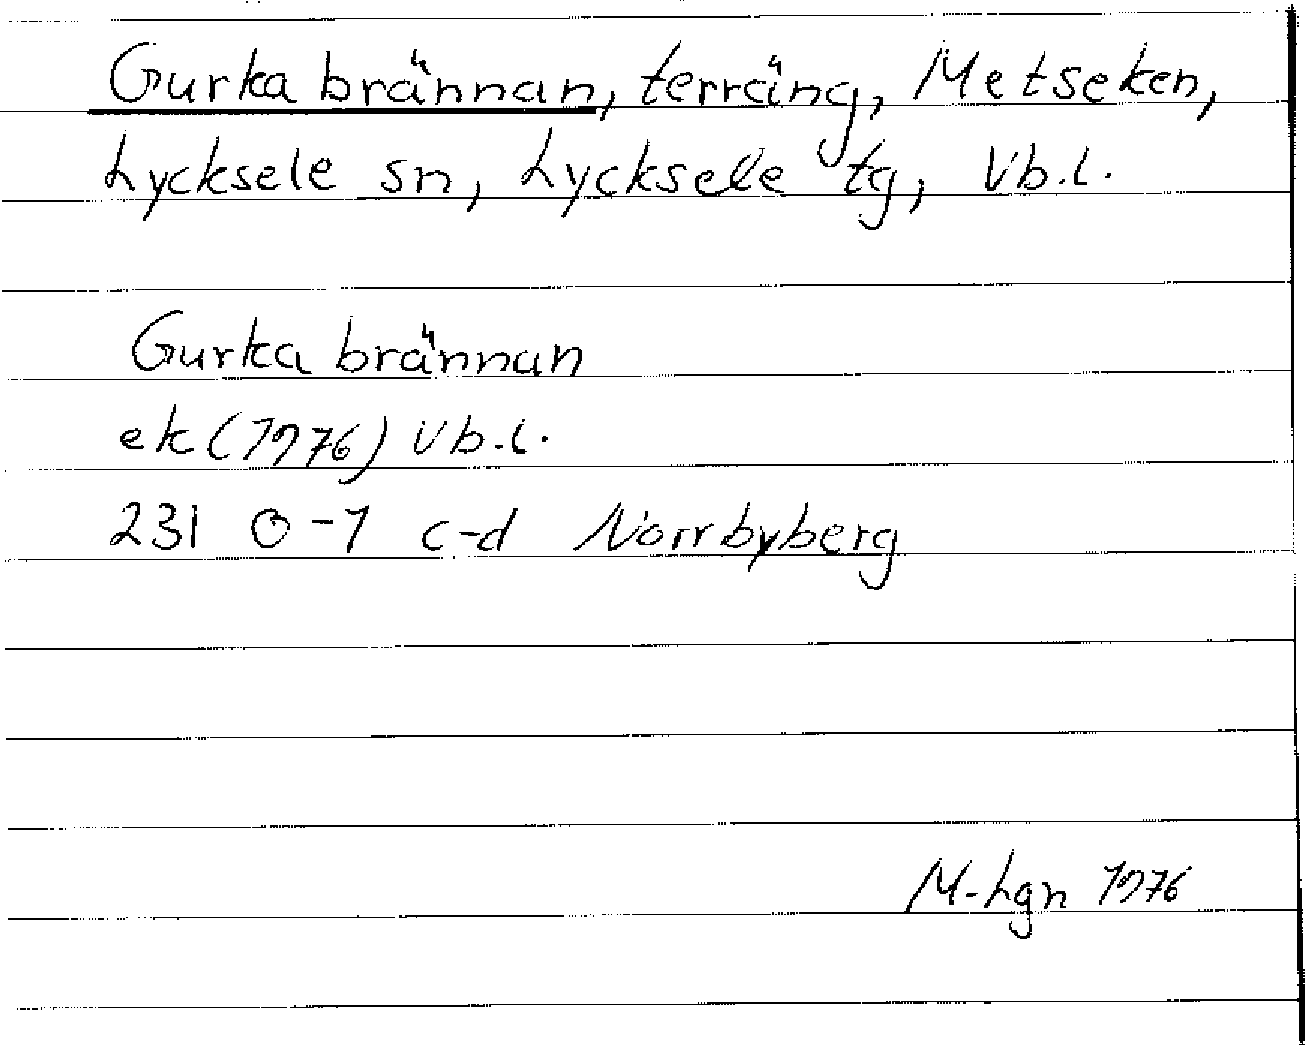 Gurkabrännan, terräng, Metseken,
Lycksele sn, Lycksele tg, Vb.l.
Gurkabrännan
ek (1976) Vb.l.
23I 0-1 c-d Norrbyberg
M-Lgn 1976